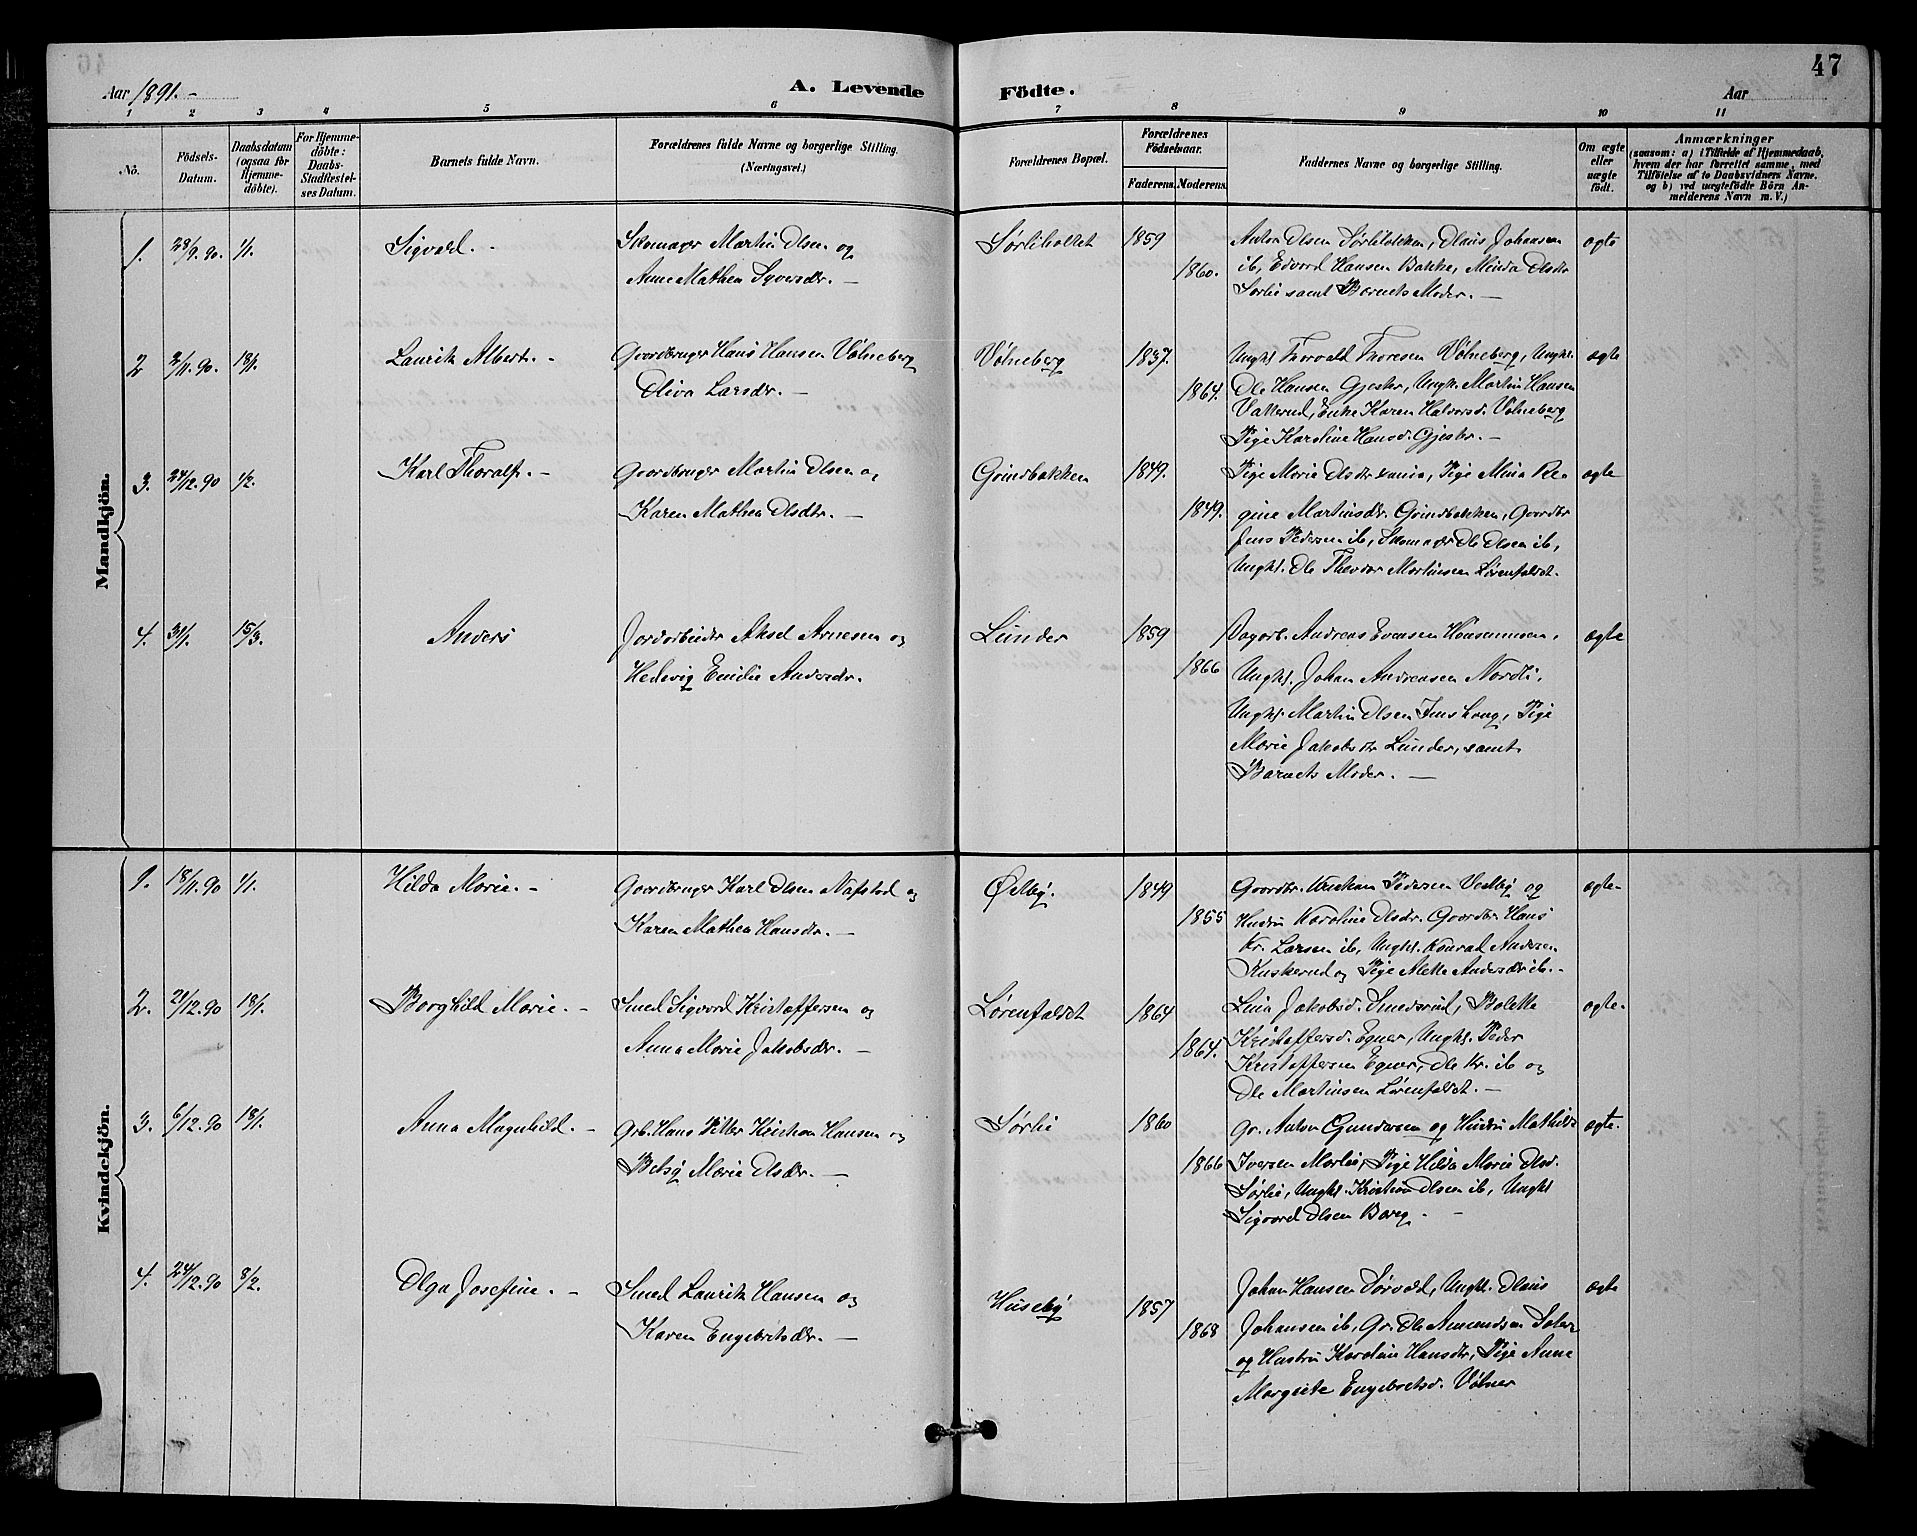 47
Aar 1891. A. Levende Födte. Aar
1 2 3 4 5 6 7 8 9 10 11
No.
Födsels-Datum.
Daabsdatum (ogsaa for Hjemme-döbte).
For Hjemme-döbte: Daabs-Stadfæstel-ses Datum.
Barnets fulde Navn.
Forældrenes fulde Navne og borgerlige Stilling.
(Næringsvei.)
Forældrenes Bopæl.
Forældrenes Födselsaar.
Faderens. Moderens.
Faddernes Navne og borgerlige Stilling.
Om ægte eller uægte födt.
Anmærkninger
(saasom: a) i Tilfælde af Hjemmedaab,
hvem der har forrettet samme, med
Tilföielse af to Daabsvidners Navne.
og b) ved uægtefödte Börn An-
melderens Navn m. V.)
Mandkjön.
1. 28/9.90. 1/1. Sigvald. Skomager Martin Olsen og Sørliholtet 1859 Anton Olsen Sørliholtet, Olaus Johansen ægte
Anne Mathea Syversdr. 1860. ib, Edvard Hansen Bakke, Minda Olsdr
Sørlie samt Barnets Moder.
2 2/11.90. 18/1. Lauritz Albert. Gaardbruger Hans Hansen Vølneberg Vølneberg 1837. Ungk. Thorvald Thoresen Vølneberg, Ungk. ægte
Oliva Larsdr. 1864. Ole Hansen Gjestr, Ungk. Martin Hansen
Vakkerud, Enke Karen Halvorsd. Vølneberg
Pige Karoline Hansd. Gjestr.
3. 24/12.90 1/2. Karl Thoralf. Gaardbruger Martin Olsen og Grindbakken 1849. Pige Marie Olsdtr Pige Mina Re- ægte
Karen Mathea Olsdtr. 1849. gine Martinsdr. Grindbakken, Gaardbr
Jens Pedersen ib, Skomager Ole Olsen ib,
Ungk. Ole Theodor Martinsen Lørenfaldet.
4. 31/1. 15/3. Anders Jordarbeider Aksel Arnesen og Lunder 1859 Dagarb. Andreas Evensen ægte
Hedevig Emilie Andersdr. 1866 Ungk. Johan Andreasen Nordli,
Ungk. Martin Olsen Pige
Marie Jakobsdtr Lunder, samt
Barnets Moder.
Kvindekjön.
1. 18/11.90 1/1. Hilda Marie. Gaardbruger Karl Olsen Nafstad og Østby. 1849 Gaardbr. Kristian Pedersen Vestby og ægte
Karen Mathea Hansdr. 1855 Hustru Karoline Olsdr. Gaardbr Hans
Kr. Larsen ib, Ungk. Konrad Andersen
Kuskerud og Pige Alette Andersdr ib.
2. 21/12.90 18/1. Borghild Marie. Smed Sigvard Kristoffersen og Lørenfaldet 1864 Lina Jakobsd. Smedsrud, Bolette ægte
Anna Marie Jakobsdr. 1864. Kristoffersd. Egner, Ungk. Peder
Kristoffersen Egner, Ole Kr. ib og
Ole Martinsen Lørenfaldet.
3. 6/12.90 18/1. Anna Magnhild. Grb. Hans Petter Kristian Hansen og Sørlie 1860 Gr. Anton Gundersen og Hustru Mathilde ægte.
Betsy Marie Olsdr. 1866 Iversen Pige Hilda Marie Olsd.
Sørlie, Ungk. Kristian Olsen ib, Ungk
Sigvard Olsen Berg.
4. 24/12.90 8/2. Olga Josefine. Smed Lauritz Hansen og Huseby 1857 Johan Hansen Sørvald, Ungk. Olaus ægte
Karen Engebretsdr. 1868 Johansen ib, Gr. Ole Amundsen
og Hustru Karoline Hansdtr, Pige Anne
Margrete Engebretsd. Vølner